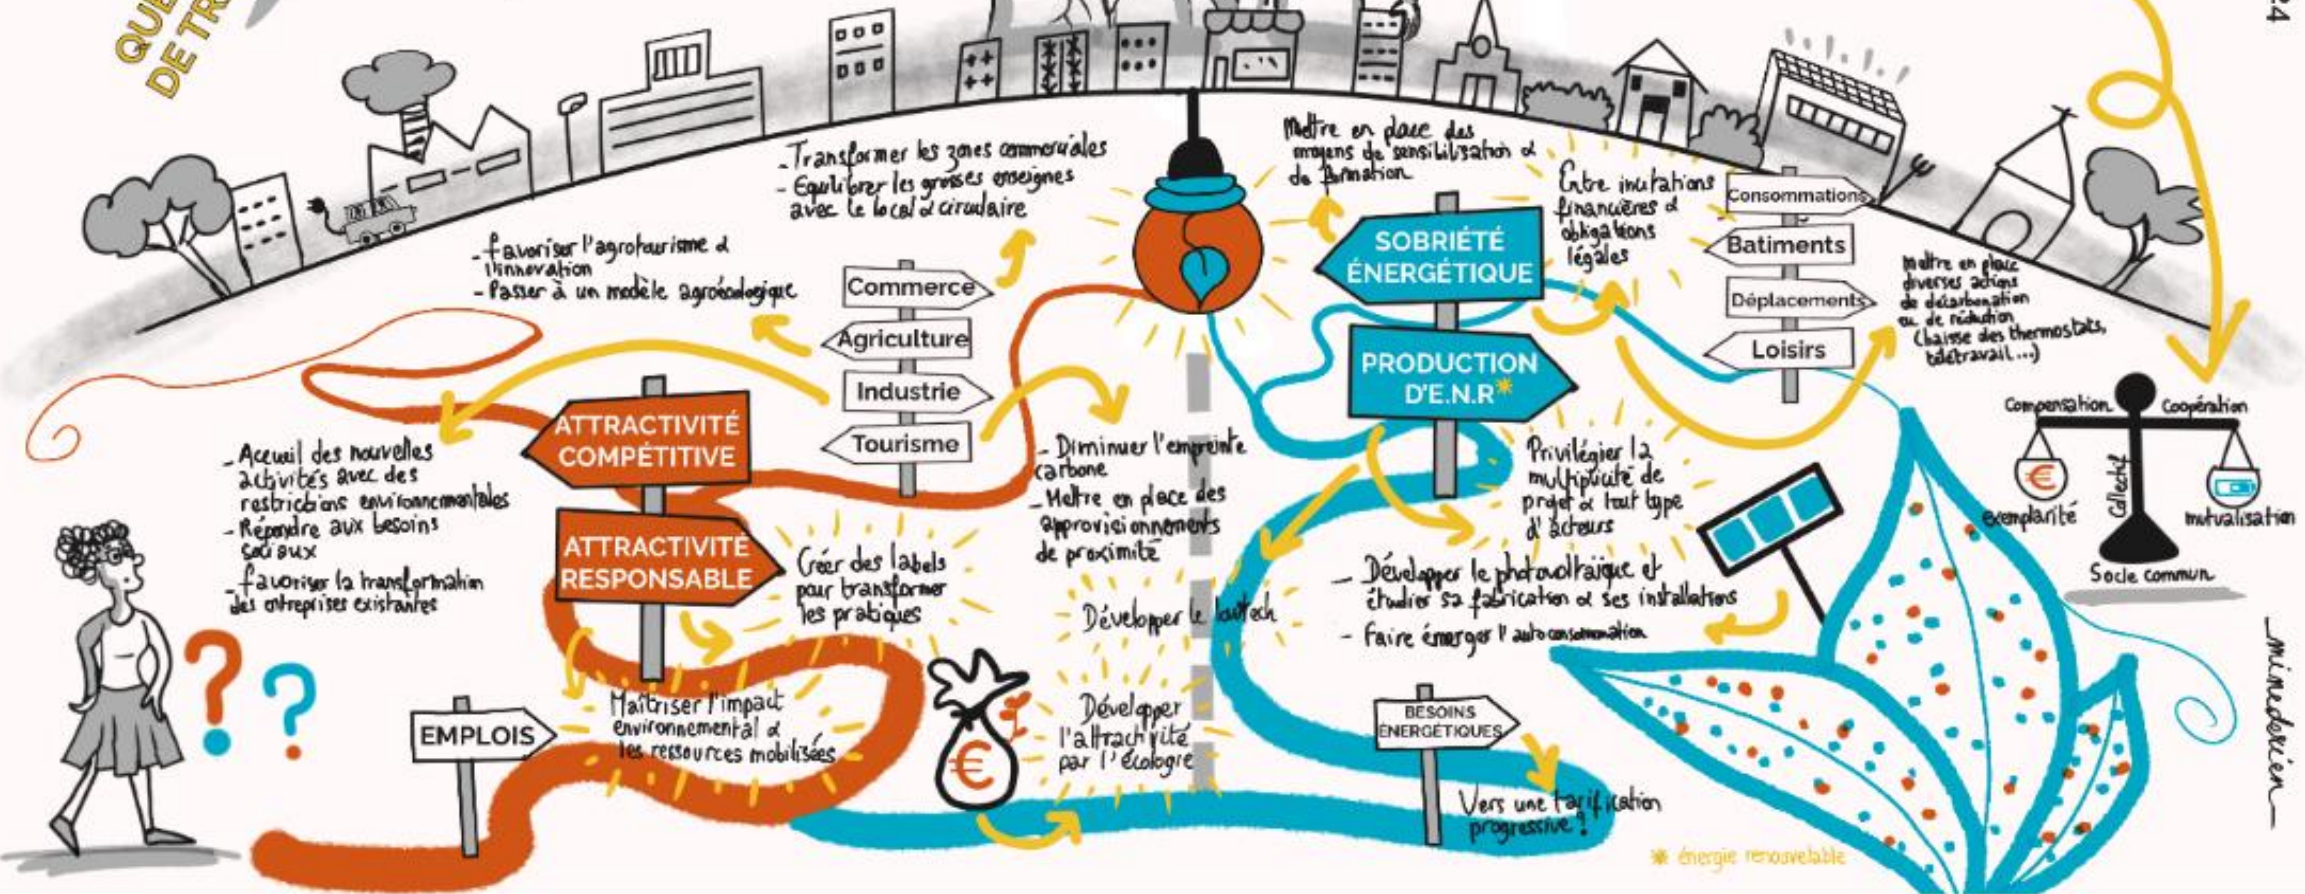 QUE
DE TR
24
- Transformer les zones commerciales
- Equilibrer les grosses enseignes
avec le local & circulaire
- favoriser l'agrotourisme &
l'innovation
- Passer à un modèle agroécologique
Commerce
Agriculture
Industrie
Tourisme
ATTRACTIVITÉ
COMPÉTITIVE
ATTRACTIVITÉ
RESPONSABLE
- Accueil des nouvelles
activités avec des
restrictions environnementales
- Répondre aux besoins
sociaux
- favoriser la transformation
des entreprises existantes
- Diminuer l'empreinte
carbone
- Mettre en place des
approvisionnements
de proximité
Créer des labels
pour transformer
les pratiques
Maîtriser l'impact
environnemental &
les ressources mobilisées
EMPLOIS
? ?
€
Développer le lowtech
Développer
l'attractivité
par l'écologie
Mettre en place des
moyens de sensibilisation &
de formation
SOBRIÉTÉ
ÉNERGÉTIQUE
PRODUCTION
D'E.N.R*
Entre incitations
financières &
obligations
légales
Consommations
Batiments
Déplacements
Loisirs
Mettre en place
diverses actions
de décarbonation
ou de réduction
(baisse des thermostats,
télétravail...)
Privilégier la
multiplicité de
projet & tout type
d'acteurs
- Développer le photovoltaïque et
étudier sa fabrication & ses installations
- Faire émerger l'autoconsommation
BESOINS
ÉNERGÉTIQUES
Vers une tarification
progressive ?
* énergie renouvelable
Compensation
Coopération
€
Exemplarité
Collectif
mutualisation
Socle commun
_minedecien_